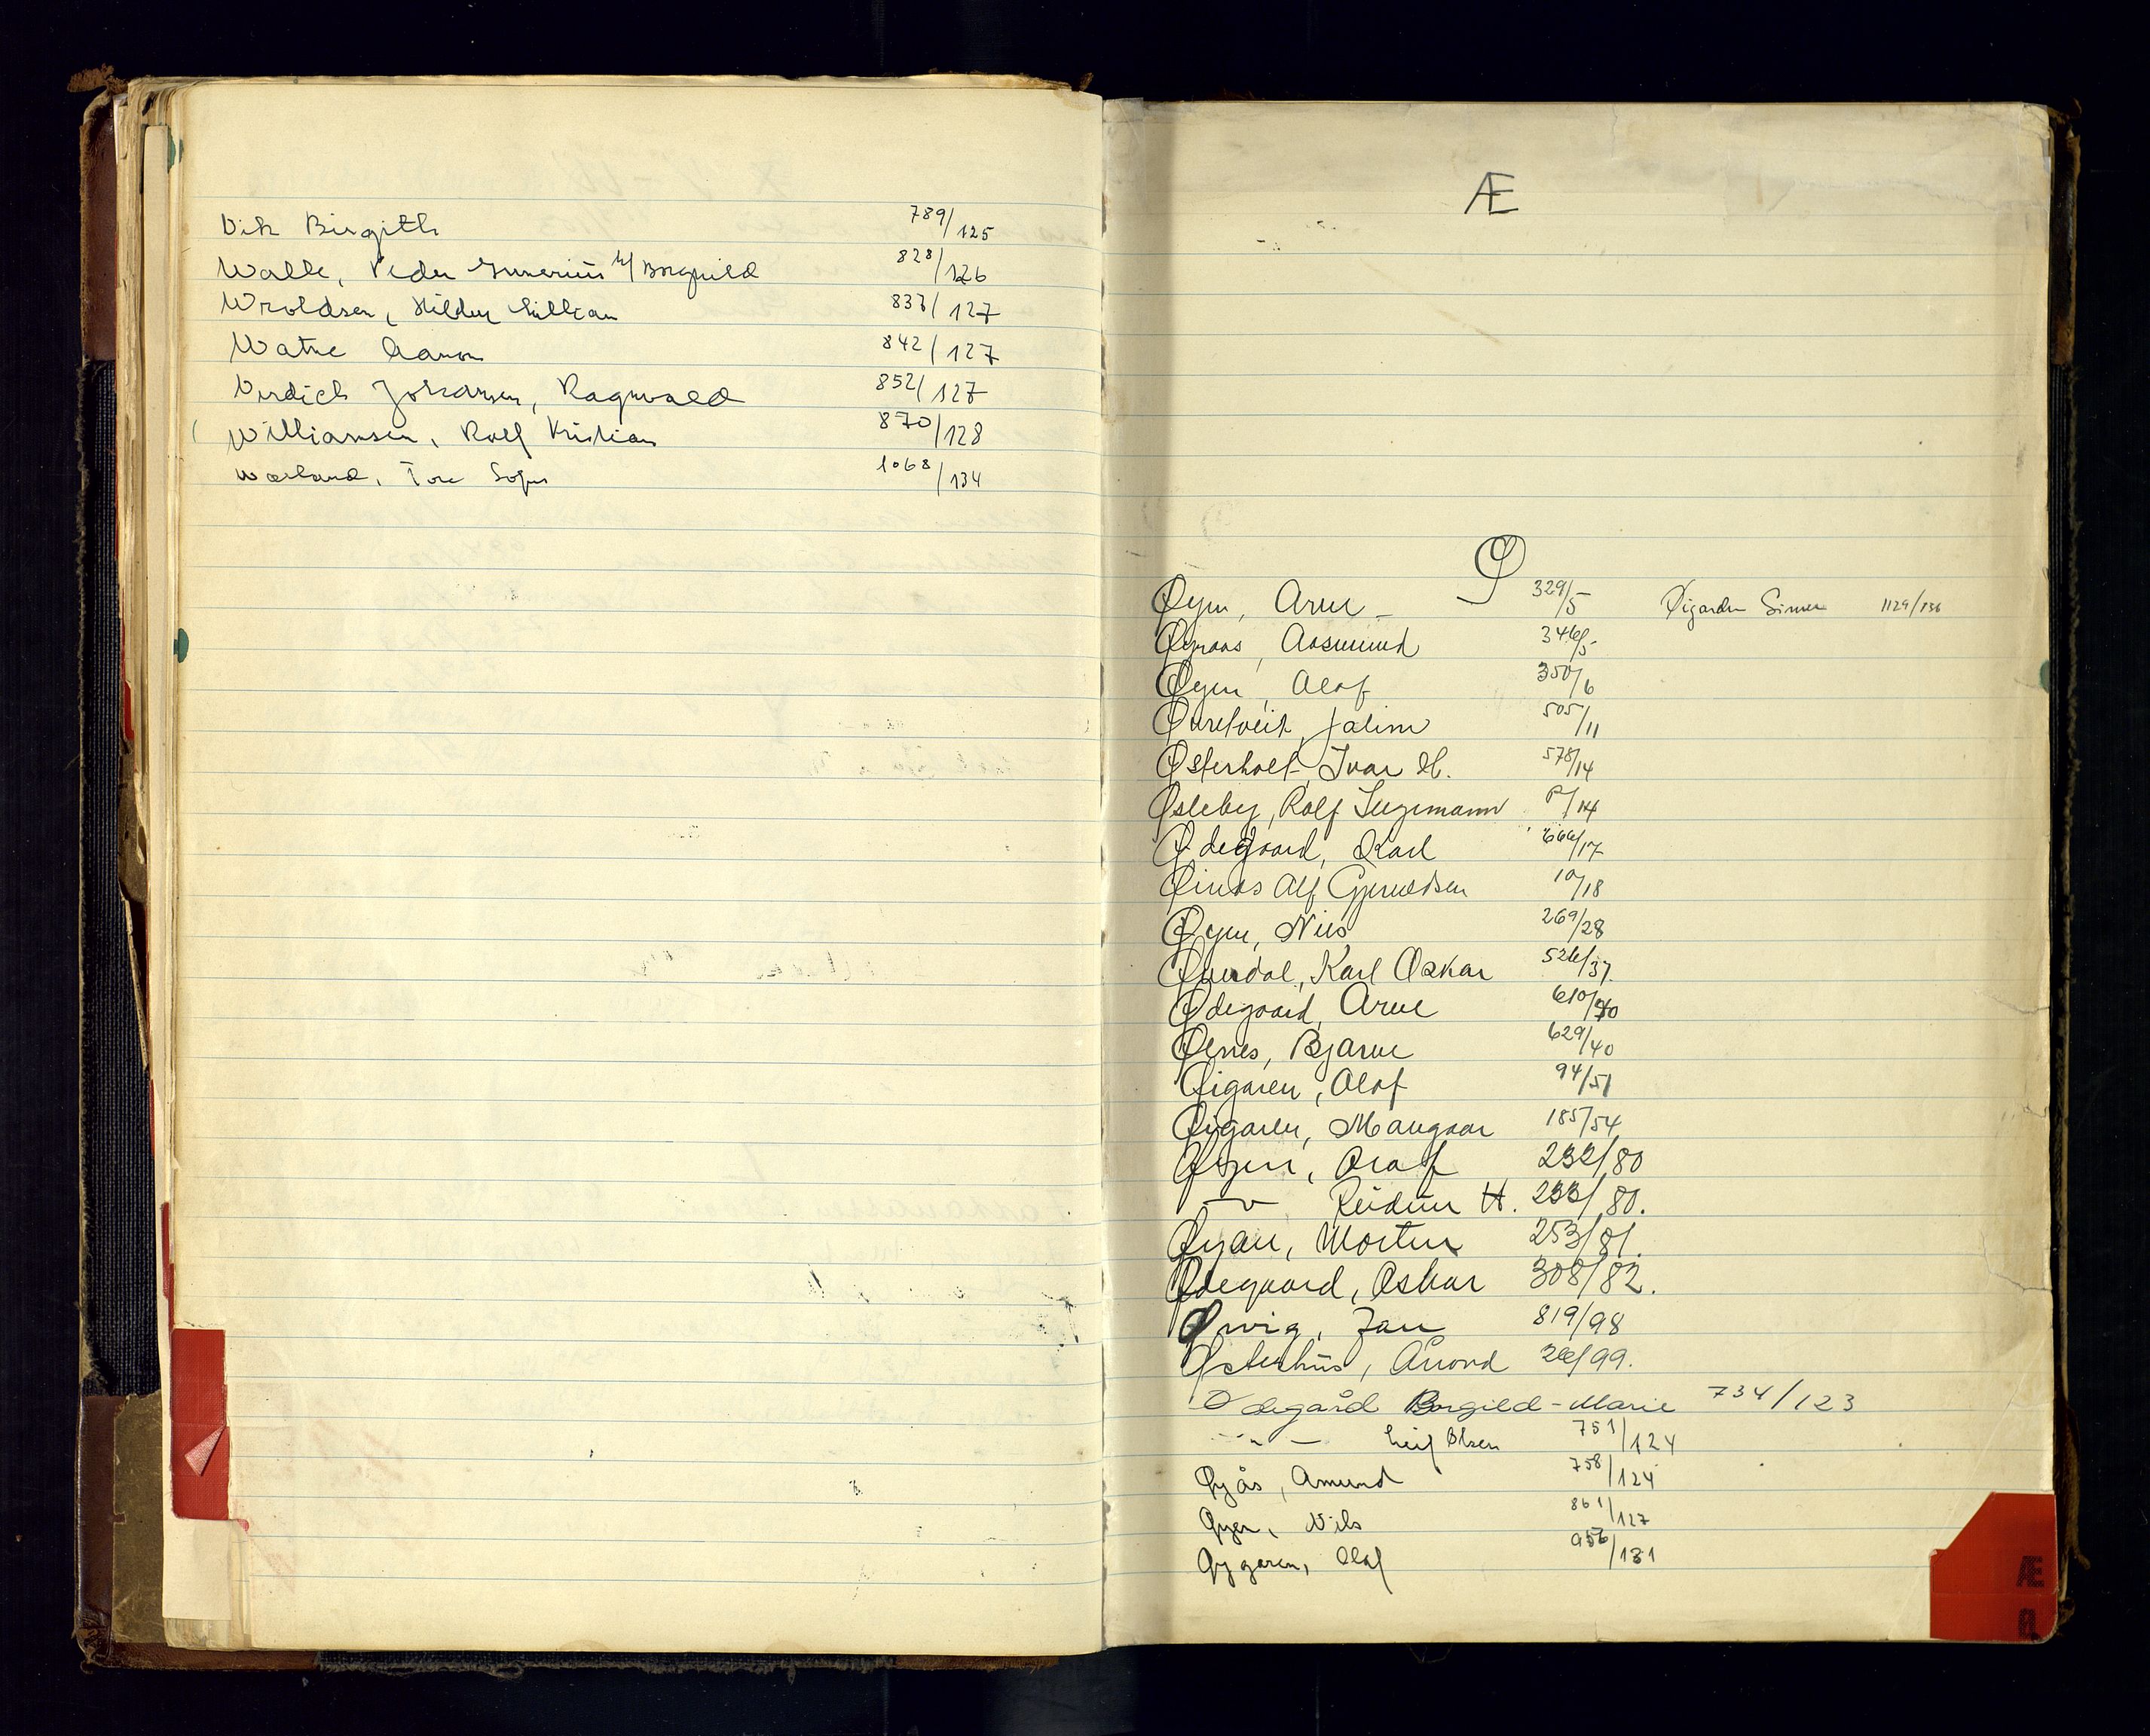 Vik Birgith 789/125
Walle, Peder Gunerius m/ Borghild 828/126
Wroldsen, Hildur Lillian 837/127
Watne Aanon 842/127
Johansen, Ragnvald 852/127
Williamsen, Rolf Kristian 870/128
Wærland, Tore Sofus 1068/134
Æ
Ø
Øyen, Arne 329/5 Øigarden Simen 1129/136
Øynaas, Aasmund 346/5
Øyen, Olaf 350/6
Øvretveit, Halim 505/11
Østerholt, Ivar H. 578/14
Østeby, Rolf 14
Ødegaard, Karl 666/17
Øinas Alf Gjeruldsen 10/18
Øyen, Nils 269/28
Karl Oskar 526/37
Ødegaard, Arne 610/40
Øenes, Bjarne 629/40
Øigaren, Olaf 94/51
Øigaren, Mangaar 185/54
Øyen, Olaf 232/80
— v — Reidun H. 233/80.
Øyan, Morten 253/81.
Ødegaard, Oskar 308/82.
Ørvig, Jan 819/98
Østerhus, Anond 26/99.
Ødegård Borgild-Marie 734/123
— " — Leif Olsen 751/124
Øyås, Amund 758/124
Øyen, Nils 861/127
Øygaren, Olaf 956/131
Æ
Ø